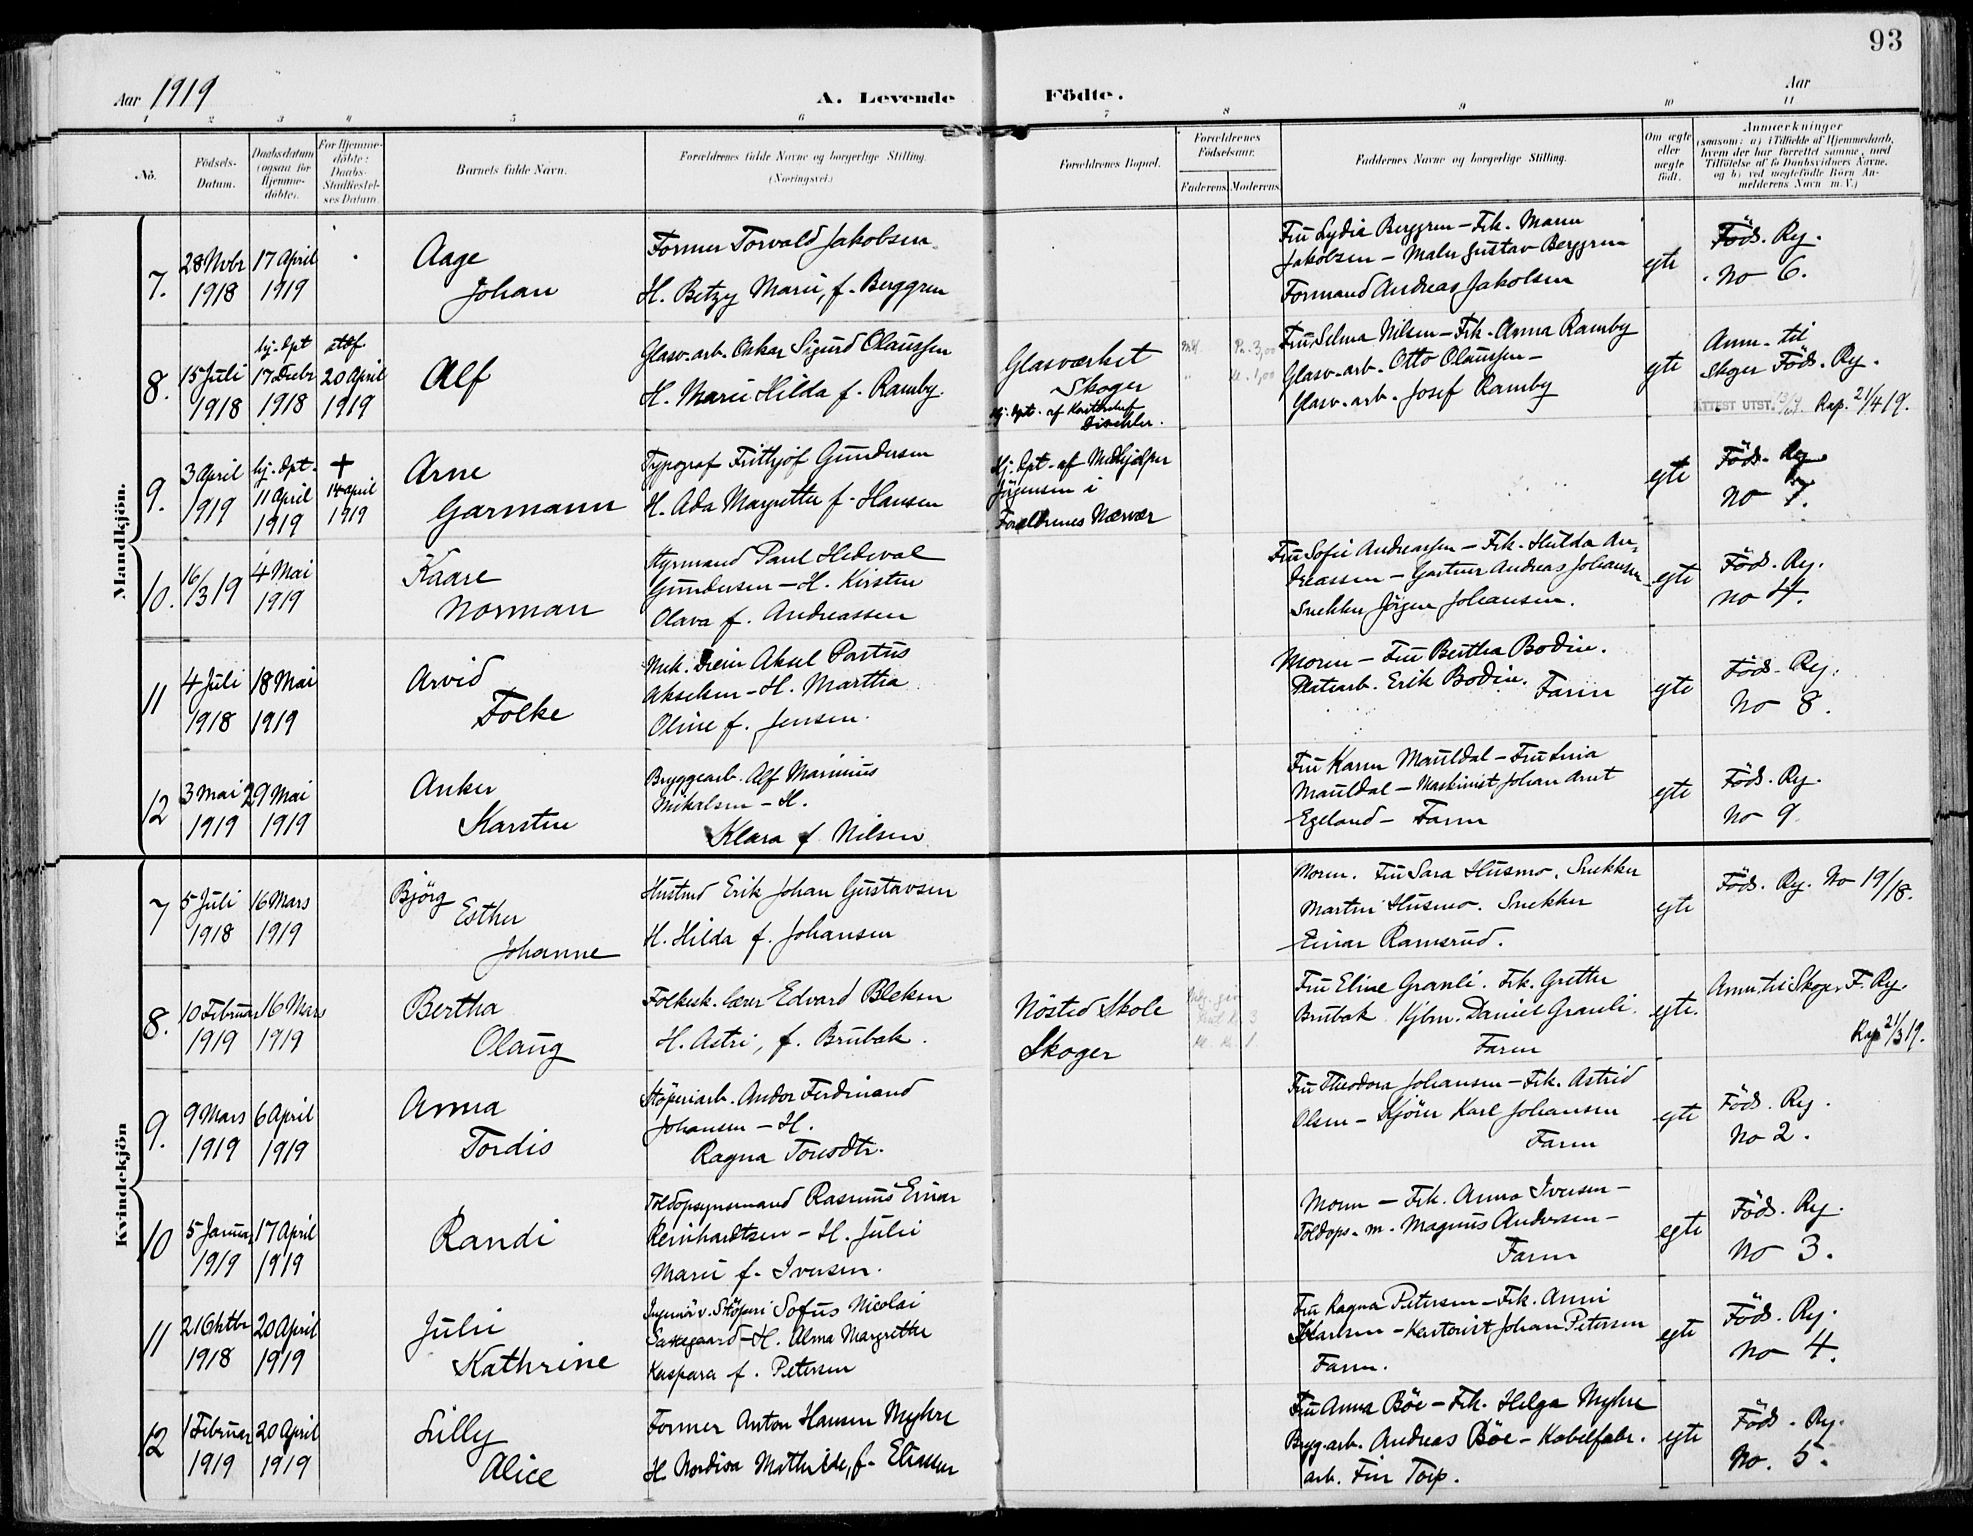 93
Aar 1919
A. Levende Födte.
Aar
1 2 3 4 5 6 7 8 9 10 11
No.
Födsels-Datum.
Daabsdatum (ogsaa for Hjemme-döbte).
For Hjemme-döbte: Daabs-Stadfæstel-ses Datum.
Barnets fulde Navn.
Forældrenes fulde Navne og borgerlige Stilling.
(Næringsvei.)
Forældrenes Bopæl.
Forældrenes Födselsaar.
Faderens. Moderens.
Faddernes Navne og borgerlige Stilling.
Om ægte eller uægte födt.
Anmærkninger
(saasom: a) i Tilfælde af Hjemmedaab,
hvem der har forrettet samme, med
Tilföielse af to Daabsvidners Navne,
og b) ved uægtefödte Börn An-
melderens Navn m. V.)
Mandkjön.
7.
28 Novbr 1918
17 April 1919
Aage
Johan
Former Torvald Jakobsen
H. Betzy Marie, f. Berggren
Fru Lydia Berggren – Frk. Maren
Jakobsen – Maler Gustav Berggren
Formand Andreas Jakobsen
egte
Föds. Rg.
No 6.
8.
15 Juli 1918
hj. dpt 17 Debr 1918
stdf 20 April 1919
Alf
Glasv. arb. Oskar Sigurd Olaussen
H. Marie Hilda f. Ramby.
Glasværket
Skoger
Hj. dpt. af
Fru Selma Nilsen – Frk. Anna Ramby
Glasv. arb. Otto Olaussen –
Glasv. arb. Josef Ramby
egte
Anm. til
Skoger Föds. Rg.
ATTEST UTST. Rap. 21/4 19.
9.
3 April 1919
hj. dpt. 11 April 1919
+ 14 April 1919
Arne
Garmann
Typograf Frithjof Gundersen
H. Ada Margrethe f. Hansen
Hj. dpt. af Medhjelper
Jörgensen i
Forældrenes Nærvær
egte
Föds. Rg.
No 7.
10.
16/3 19
4 Mai 1919
Kaare
Norman
Styrmand Paul Hedeval
Gundersen – H. Kirsten
Olava f. Andreassen
Fru Sofie Andreassen – Frk. Hulda An-
dreassen – Gartner Andreas Johansen
Snekker Jörgen Johansen.
egte
Föds. Rg.
No 4.
11
4 Juli 1918
18 Mai 1919
Arvid
Folke
Mek. Aksel Partus
Akselsen – H. Martha
Oline f. Jensen.
Moren – Fru Bertha Bodin.
Platearb. Erik Bodin. Faren
egte
Föds. Rg.
No 8.
12
3 Mai 1919
29 Mai 1919
Anker
Karsten
Bryggearb. Alf Marinius
Mikalsen – H.
Klara f. Nilsen.
Fru Karen Mauldal – Fru Lina
Mauldal – Maskinist Johan Arnt
Egeland – Faren
egte
Föds. Rg.
No 9.
Kvindekjön
7
5 Juli 1918
16 Mars 1919
Björg
Esther
Johanne
Hustmd Erik Johan Gustavsen
H. Hilda f. Johansen
Moren. Fru Sara Husmo. Snekker
Martin Husmo. Snekker
Einar Ramsrud.
egte
Föds. Rg. No 19/18.
8.
10 Februar 1919
16 Mars 1919
Bertha
Olaug
Folkesk. lærer Edvard Bleken
H. Astri, f. Brubak.
Nösted Skole
Skoger
Fru Eline Granli. Frk. Grethe
Brubak Kjbm. Daniel Granli.
Faren
egte.
Anm. til Skoger F. Rg.
Rap 21/3 19.
9.
9 Mars 1919
6 April 1919
Anna
Tordis
Stöperiarb. Andor Ferdinand
Johansen – H.
Ragna Toresdtr.
Fru Theodora Johansen – Frk. Astrid
Olsen – Kjörer Karl Johansen
Faren
egte
Föds. Rg.
No 2.
10
5 Januar 1919
17 April 1919
Randi
Toldopsynsmand Rasmus Einar
Reinhardtsen – H. Julie
Marie f. Iversen.
Moren – Frk. Anna Iversen –
Toldops. m. Magnus Andersen –
Faren
egte
Föds. Rg.
No 3.
11
21 Oktbr 1918
20 April 1919
Julie
Kathrine
Ingeniör v. Stöperi Sofus Nicolai
H. Alma Margrethe
Kaspara f. Petersen
Fru Ragna Petersen – Frk. Anni
Karlsen – Kontorist Johan Petersen
Faren.
egte
Föds. Rg.
No 4.
12
1 Februar 1919
20 April 1919
Lilly
Alice
Former Anton Hansen Myhre
H. Nordiva Mathilde, f. Eliassen
Fru Anna Böe – Frk. Helga Myhre
Bryg. arb. Andreas Böe – Kabelfabr.
arb. Finn Torp.
egte
Föds. Rg.
No. 5.